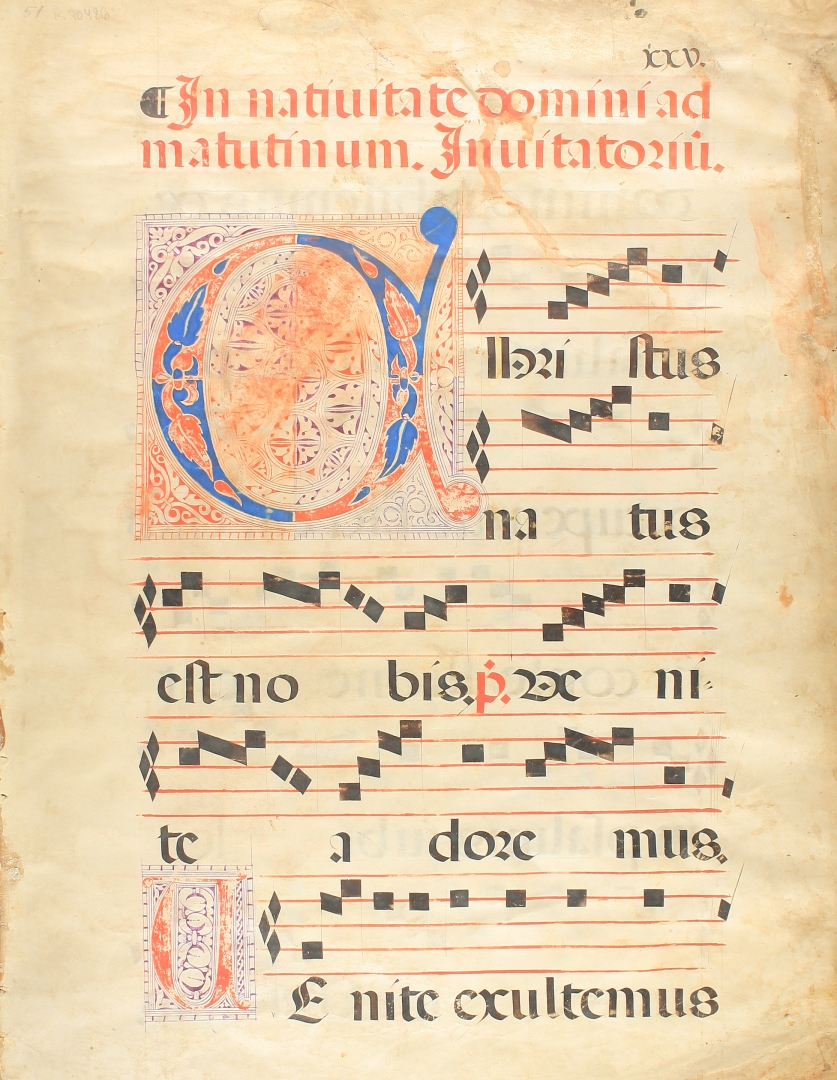 xxv.
¶ In natiuitate domini ad
matutinum. Inuitatoriū.
C
hri stus
na tus
est no bis. p̄. Ve ni-
te a dore mus.
V
E nite exultemus